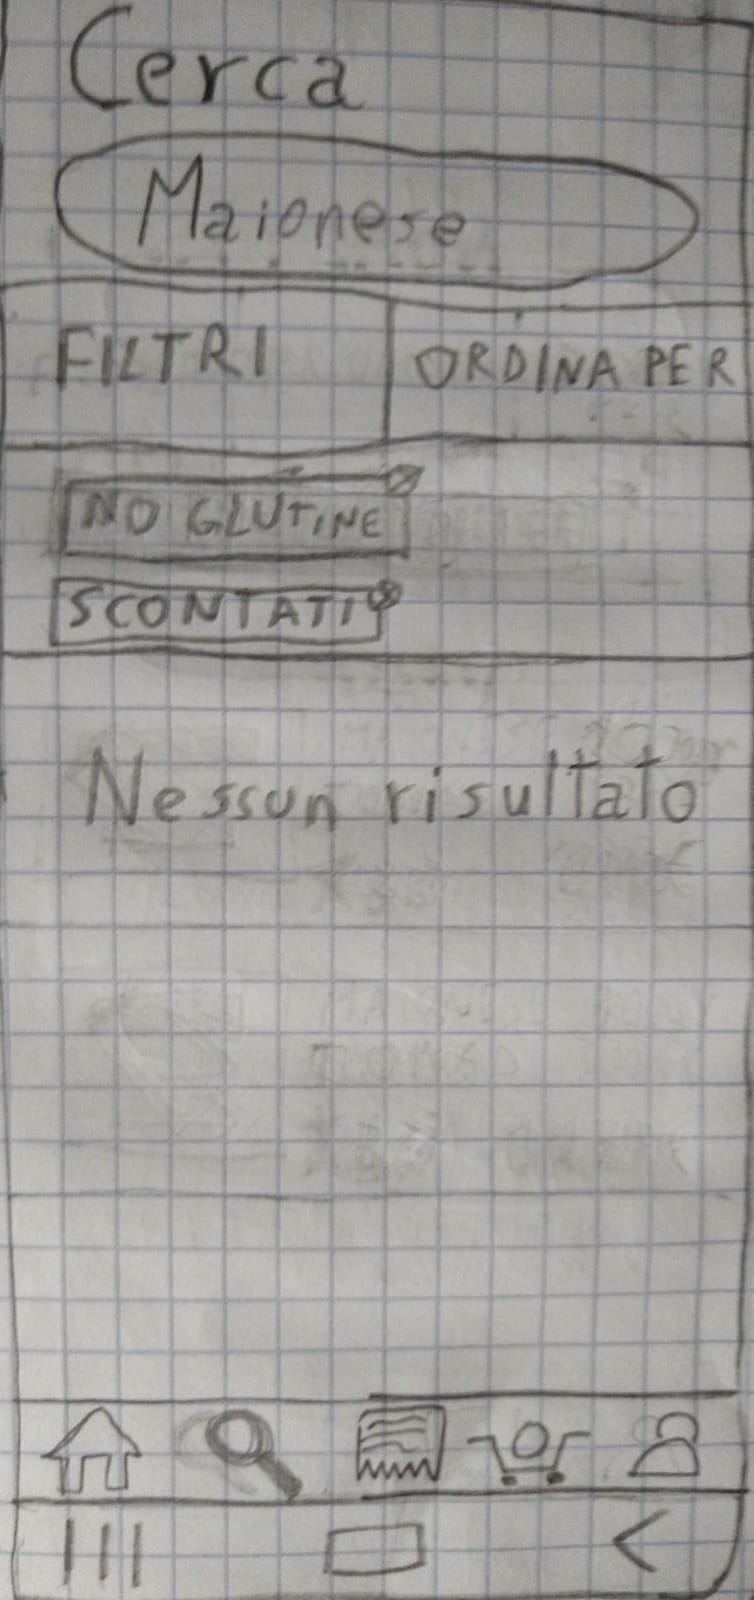 Cerca
Maionese
FILTRI
ORDINA PER
NO GLUTINE
SCONTATI
Nessun risultato